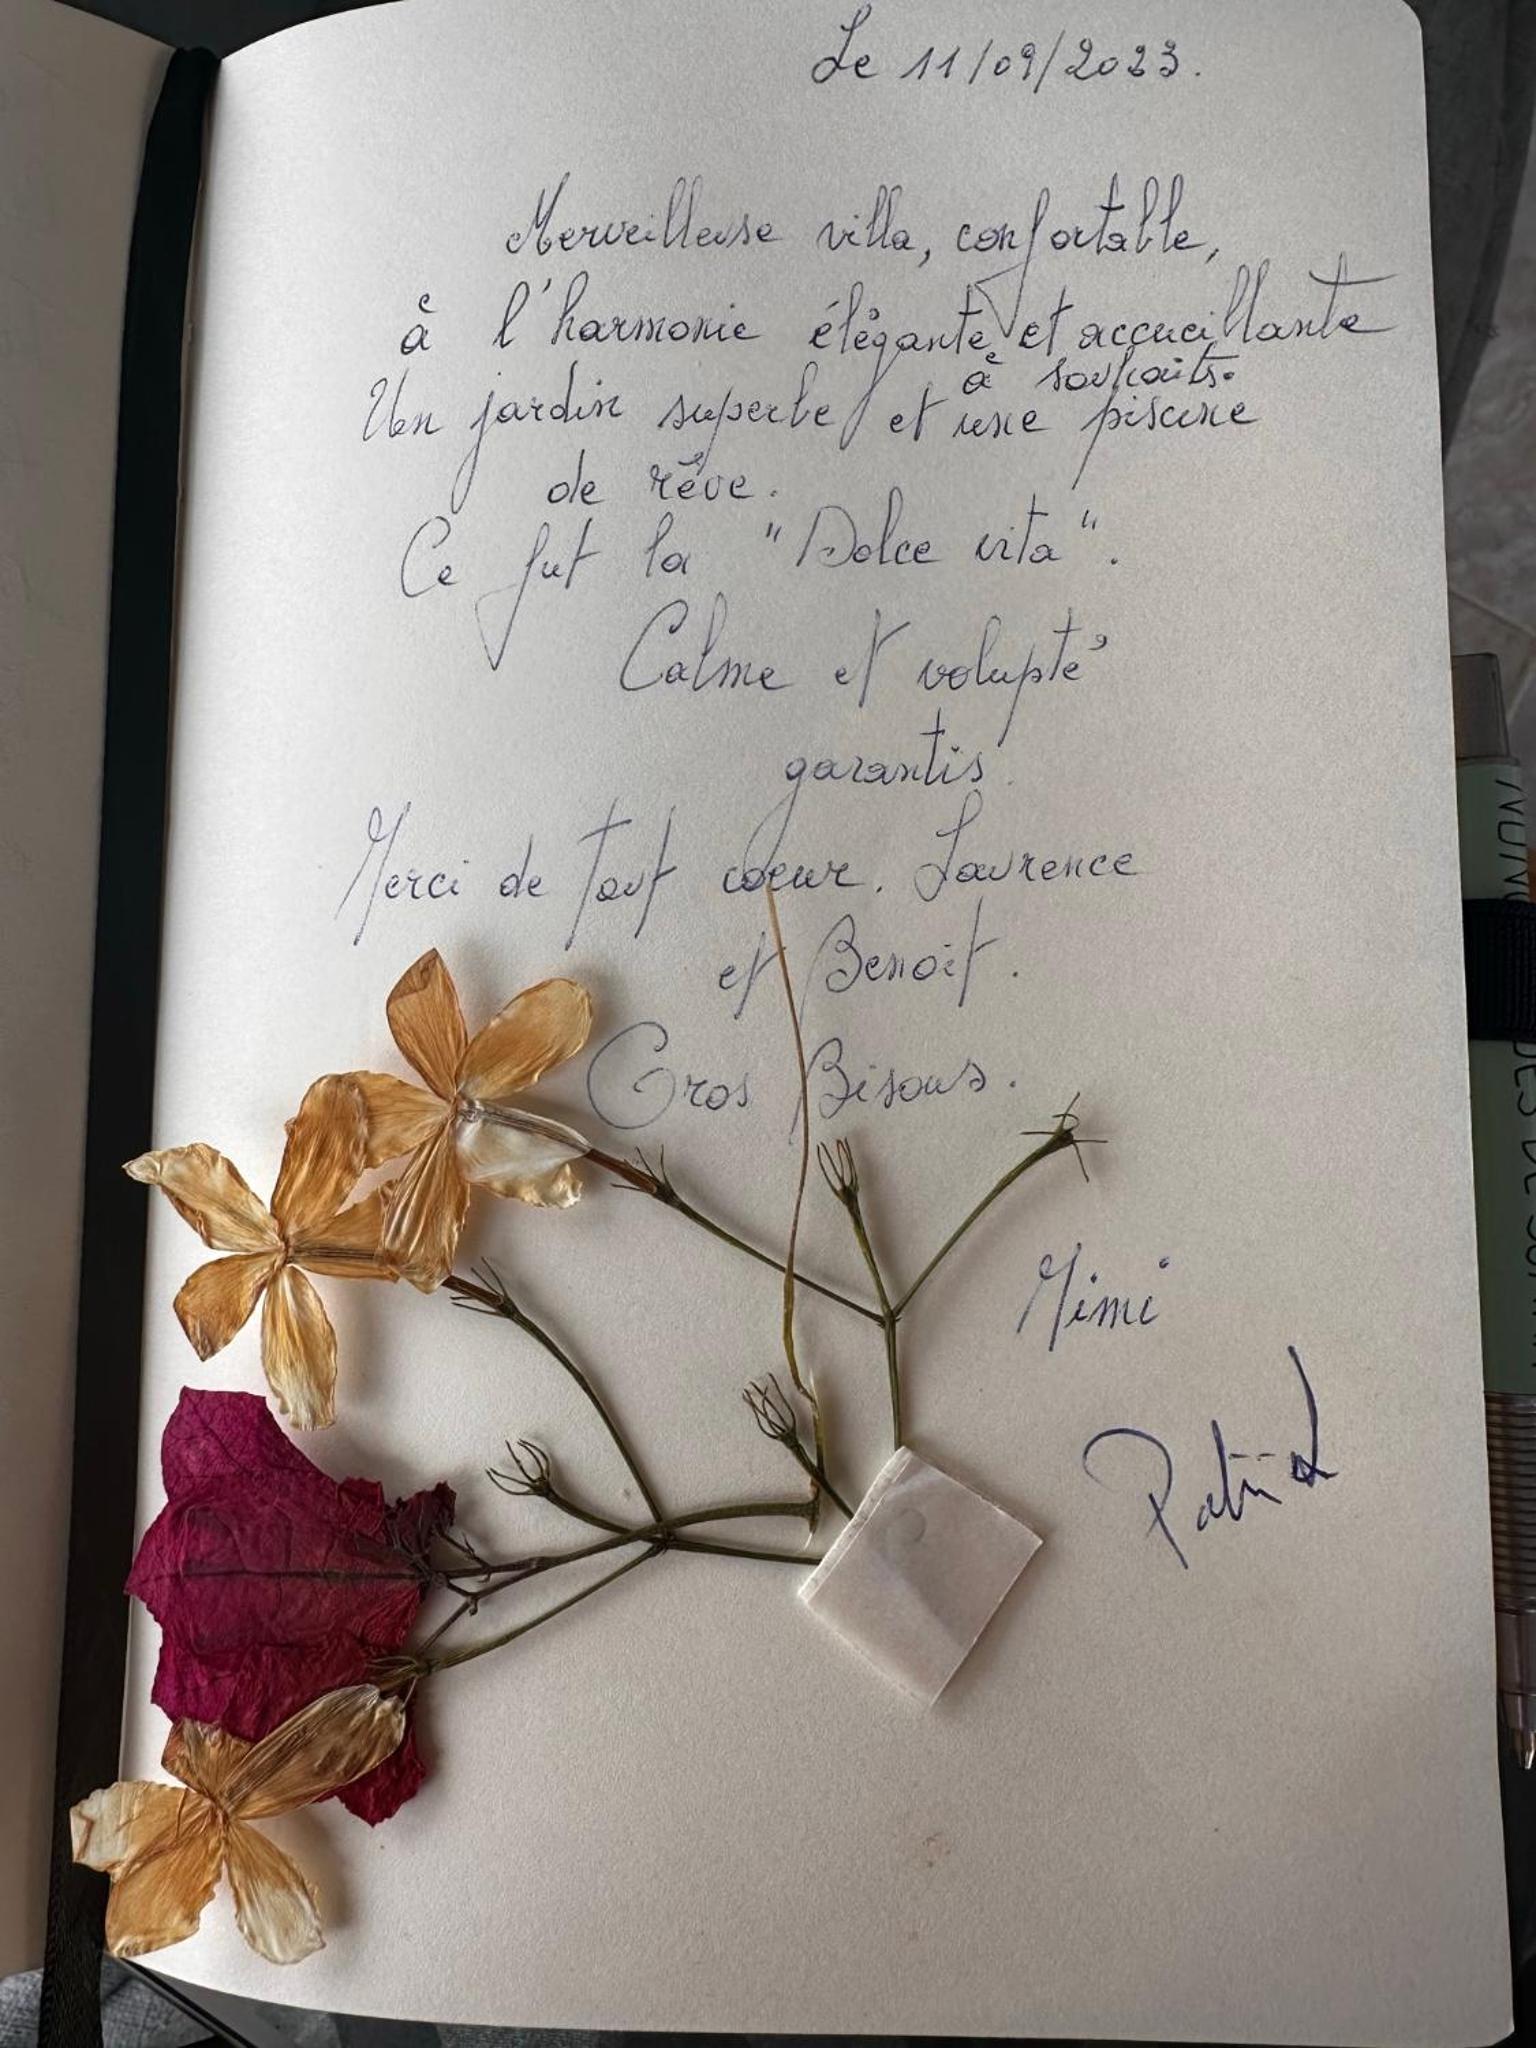 Le 11/09/2023.
Merveilleuse villa, confortable,
à l'harmonie élégante et accueillante
à souhaits.
Un jardin superbe et une piscine
de rêve.
Ce fut la "Dolce vita".
Calme et volupté
garantis.
Merci de tout coeur. Laurence
et Benoit.
Gros Bisous.
Mimi
Patrick